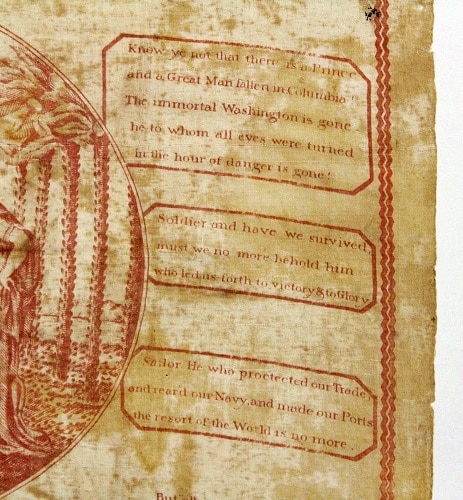 Know ye not that there is a Prince
and a Great Man fallen in Columbia
The immortal Washington is gone
he to whom all eyes were turned
in the hour of danger is gone!
Soldier and have we survived,
must we no more behold him
who led us forth to victory & to Glory
Sailor He who proctected our Trade,
and rear'd our Navy, and made our Ports
the resort of the World is no more.